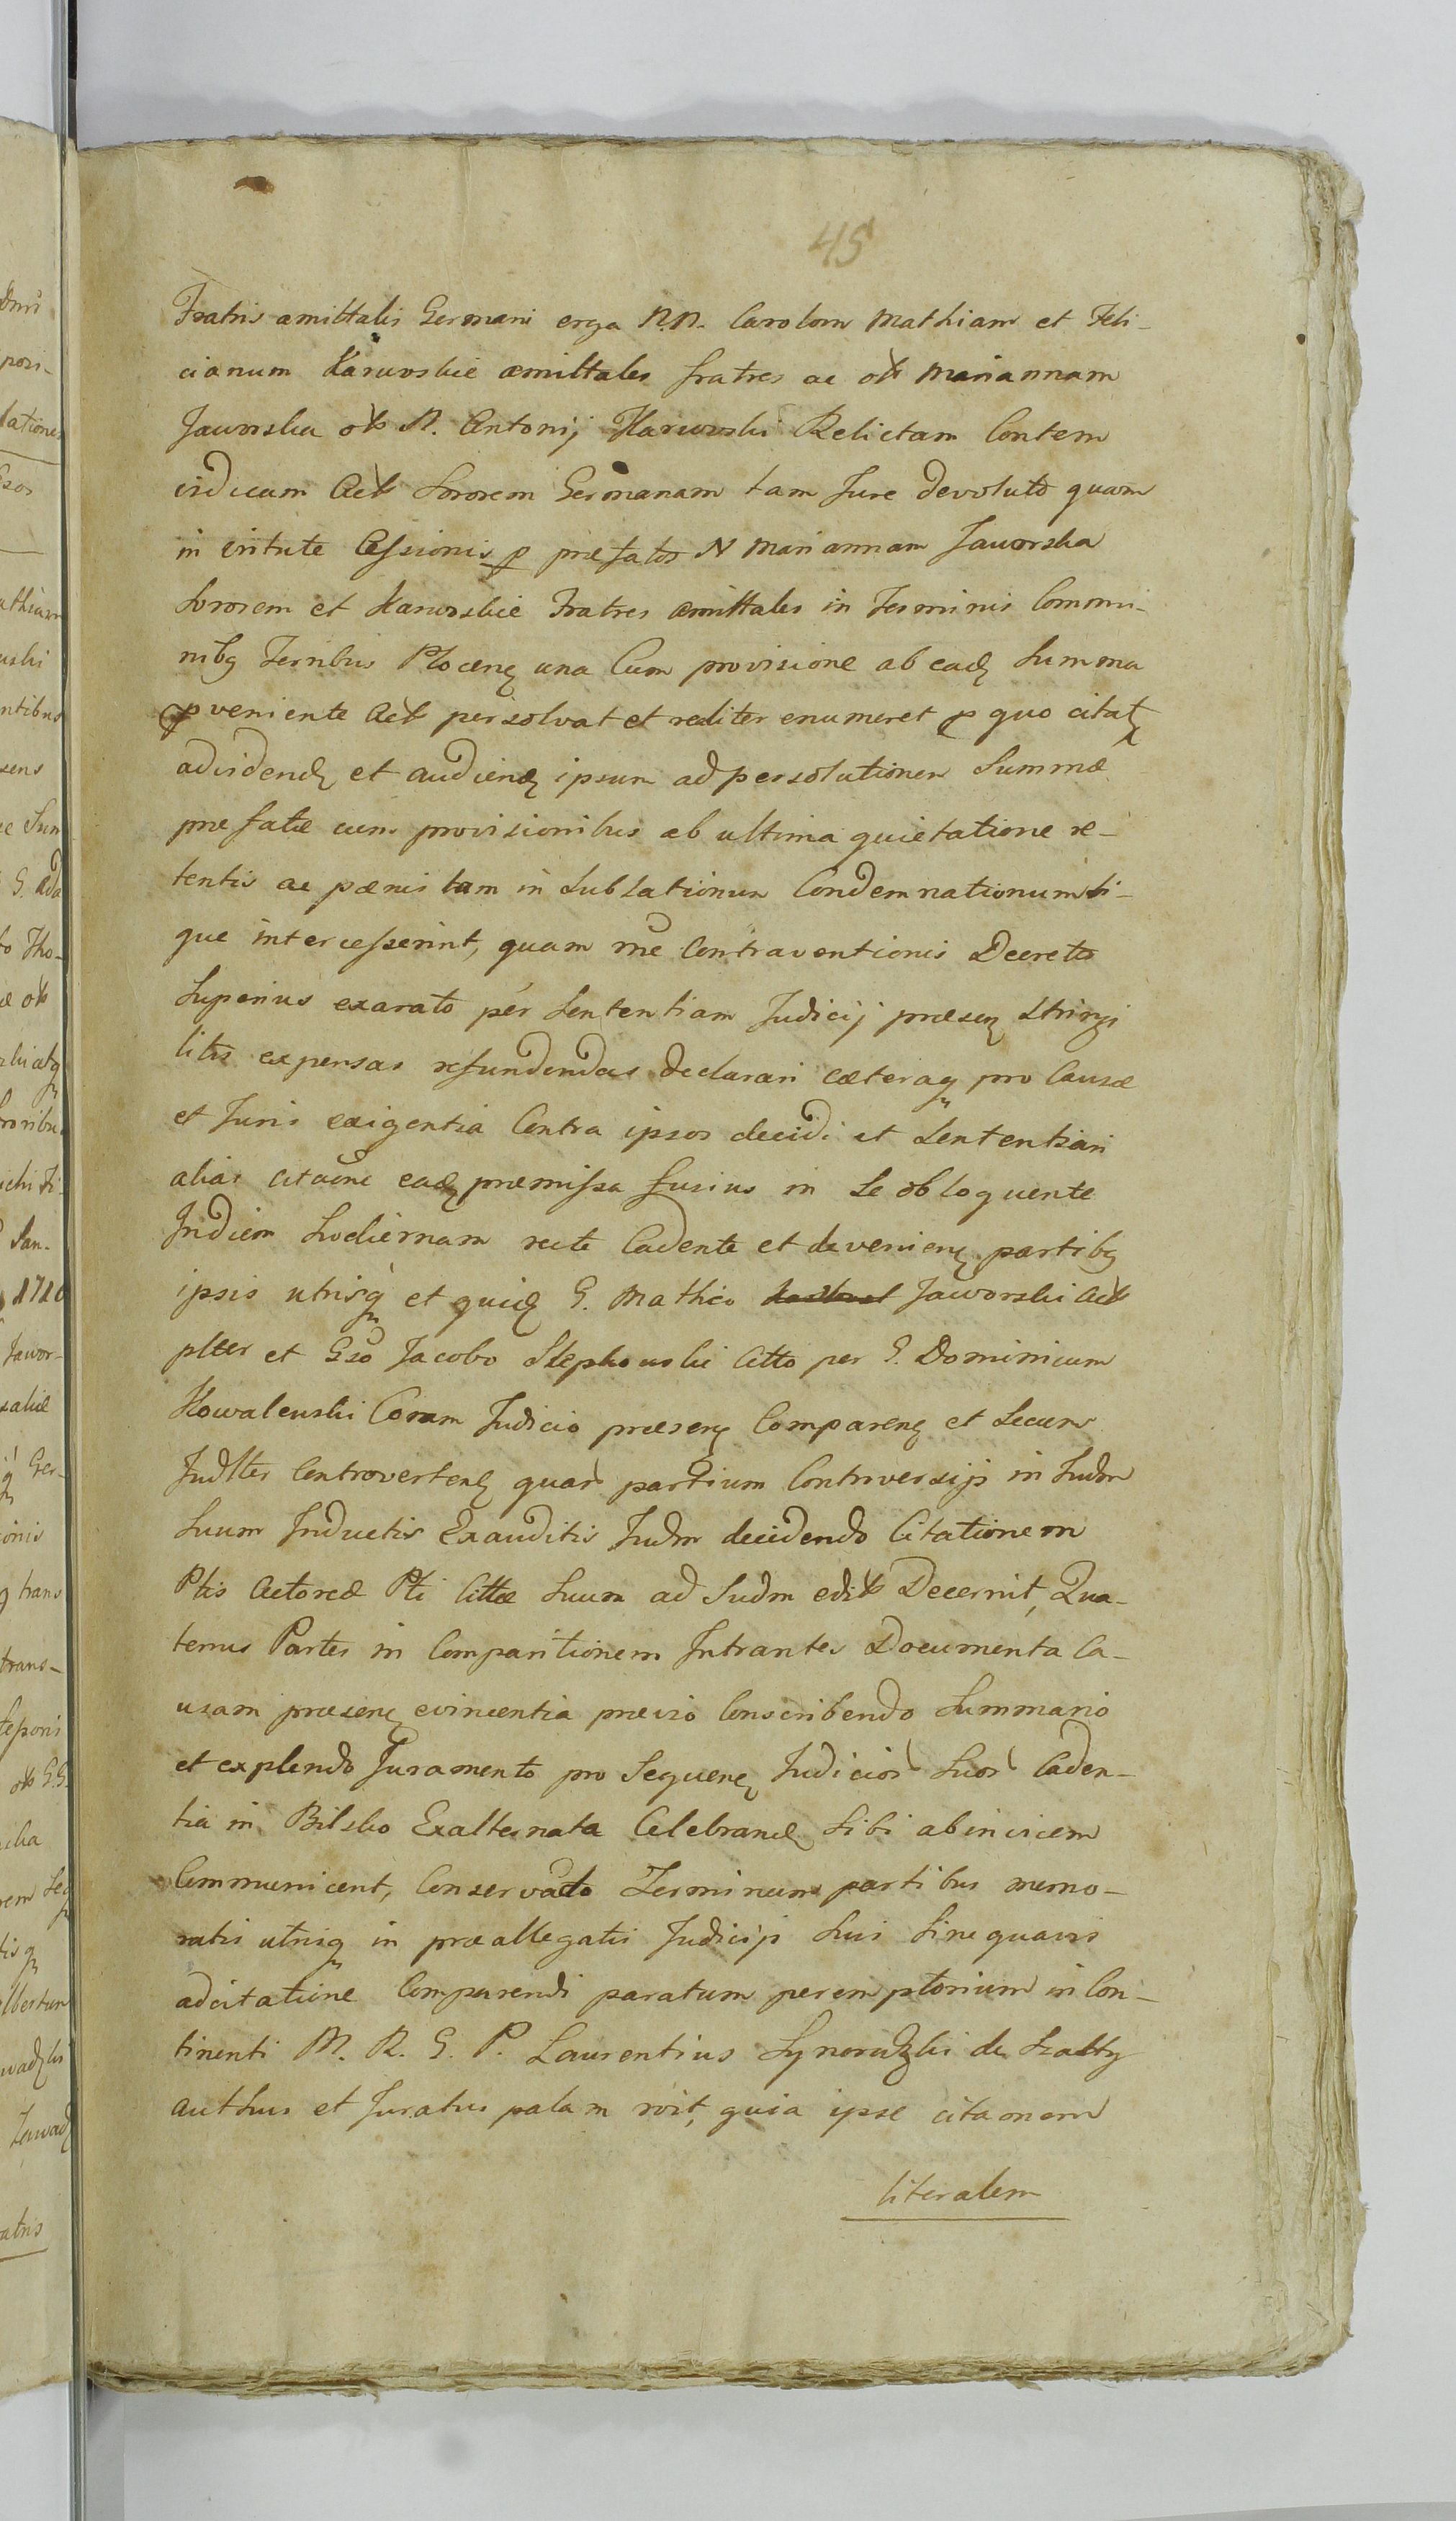 45
Fratris amittalis Germani erga N.N. Carolum Mathiam et Feli-
cianum Karwoskie amittales fratres ac oł Mariannam
Jaworska oł N. Antonij Karwoski Relictam Contem
viduam Acł Sororem Germanam tam Jure devoluto quam
in virtute Cessionis p præfatos N Mariannam Jaworska
Sororem et Karwoskie Fratres amittales in Terminis Commu-
nibq Terribus Plocenȩ una Cum provisione ab eadȩ Summa
pveniente Acł persolvat et realiter enumeret p quo citatȩ
ad videndȩ et audiendȩ ipsum ad persolutionem Summæ
præfatæ cum provisionibus ab ultima quietatione re-
tentis ac pænis tam in Sublationem Condemnationum si-
que intercesserint, quam rne Contraventionis Decreto
Superius exarato per Sententiam Judicij præsenȩ Stringi
litis expensas refundendas declarari cæteraq pro Causæ
et Juris exigentia Contra ipsos decidi et Sententiari
alias citaone eadȩ præmissa fusius in Se obloquente
In diem hodiernam recte Cadente et devenienȩ partibq
ipsis utrisq et quidȩ G. Mathia Jaworski Acł
plter et Gso Jacobo Slepkowski Citto per G. Dominicum
Kowalewski Coram Judicio præsenȩ Comparenȩ et Secum
Judlter Controvertenȩ quar partium Controversijs in Judm
Suum Inductis Exauditis Judm decidendo Citationem
Ptis Actoreæ Pti Cittæ Suum ad Judm edił Decernit, Qua-
tenus Partes in Comparitionem Intrantes Documenta Ca-
usam præsenȩ evincentia prævio Conscribendo Summario
et explendo Juramento pro Sequenȩ Judicior Suor Caden-
tia in Bilsko Exalternata Celebrandȩ Sibi abinvicem
Communicent, Conservado Terminum partibus memo-
ratis utrisq in præallegatis Judicijs Suis Sine quavis
adcitatione Comparendi paratum peremptorium in Con-
tinenti M. R. G. P. Laurentius
authus et Juratus palam roit, quia ipse citaonem
literalem